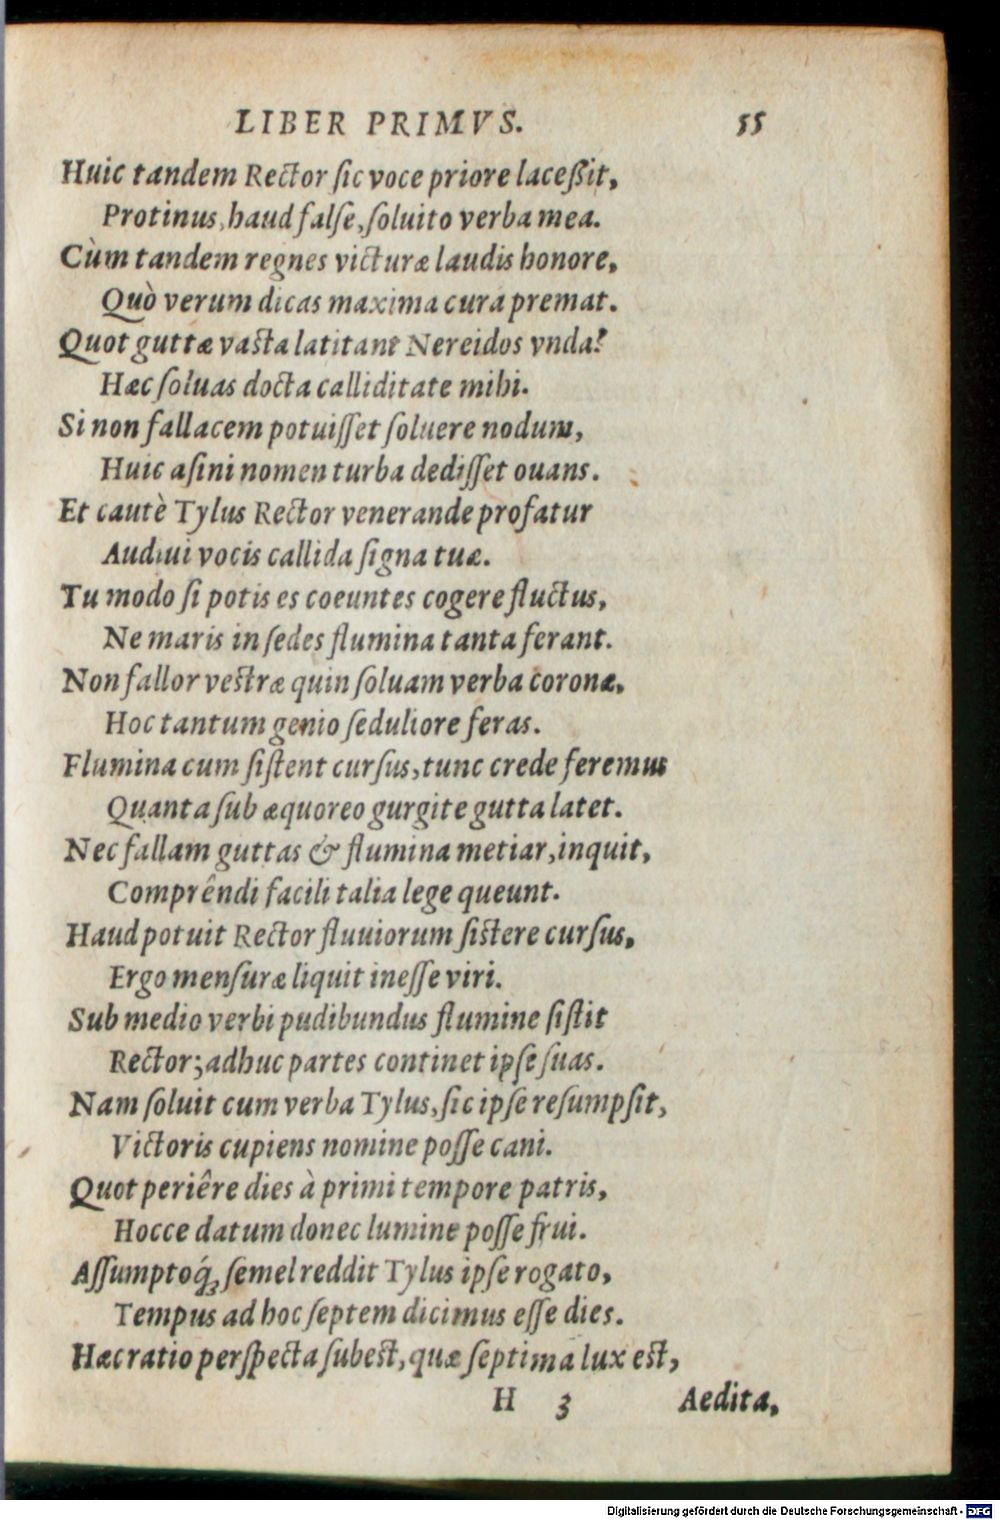 LIBER PRIMVS. 55
Huic tandem Rector ſic voce priore laceßit,
Protinus, haud falſe, ſoluito verba mea.
Cùm tandem regnes victuræ laudis honore,
Quò verum dicas maxima cura premat.
Quot guttæ vasta latitant Nereidos vnda?
Hæc ſoluas docta calliditate mihi.
Si non fallacem potuiſſet ſoluere nodum,
Huic aſini nomen turba dediſſet ouans.
Et cautè Tylus Rector venerande profatur
Audiui vocis callida ſigna tuæ.
Tu modo ſi potis es coeuntes cogere fluctus,
Ne maris in ſedes flumina tanta ferant.
Non fallor vestræ quin ſoluam verba coronæ,
Hoc tantum genio ſeduliore feras.
Flumina cum ſiſtent curſus, tunc crede feremus
Quanta ſub æquoreo gurgite gutta latet.
Nec fallam guttas & flumina metiar, inquit,
Comprêndi facili talia lege queunt.
Haud potuit Rector fluuiorum ſistere curſus,
Ergo menſuræ liquit ineſſe viri.
Sub medio verbi pudibundus flumine ſiſtit
Rector; adhuc partes continet ipſe ſuas.
Nam ſoluit cum verba Tylus, ſic ipſe reſumpſit,
Victoris cupiens nomine poſſe cani.
Quot periêre dies à primi tempore patris,
Hocce datum donec lumine poſſe frui.
Aſſumptoq́ꝫ ſemel reddit Tylus ipſe rogato,
Tempus ad hoc ſeptem dicimus eſſe dies.
Hæc ratio perſpecta ſubest, quæ ſeptima lux est,
H 3 Aedita,
Digitalisierung gefördert durch die Deutsche Forschungsgemeinschaft - DFG